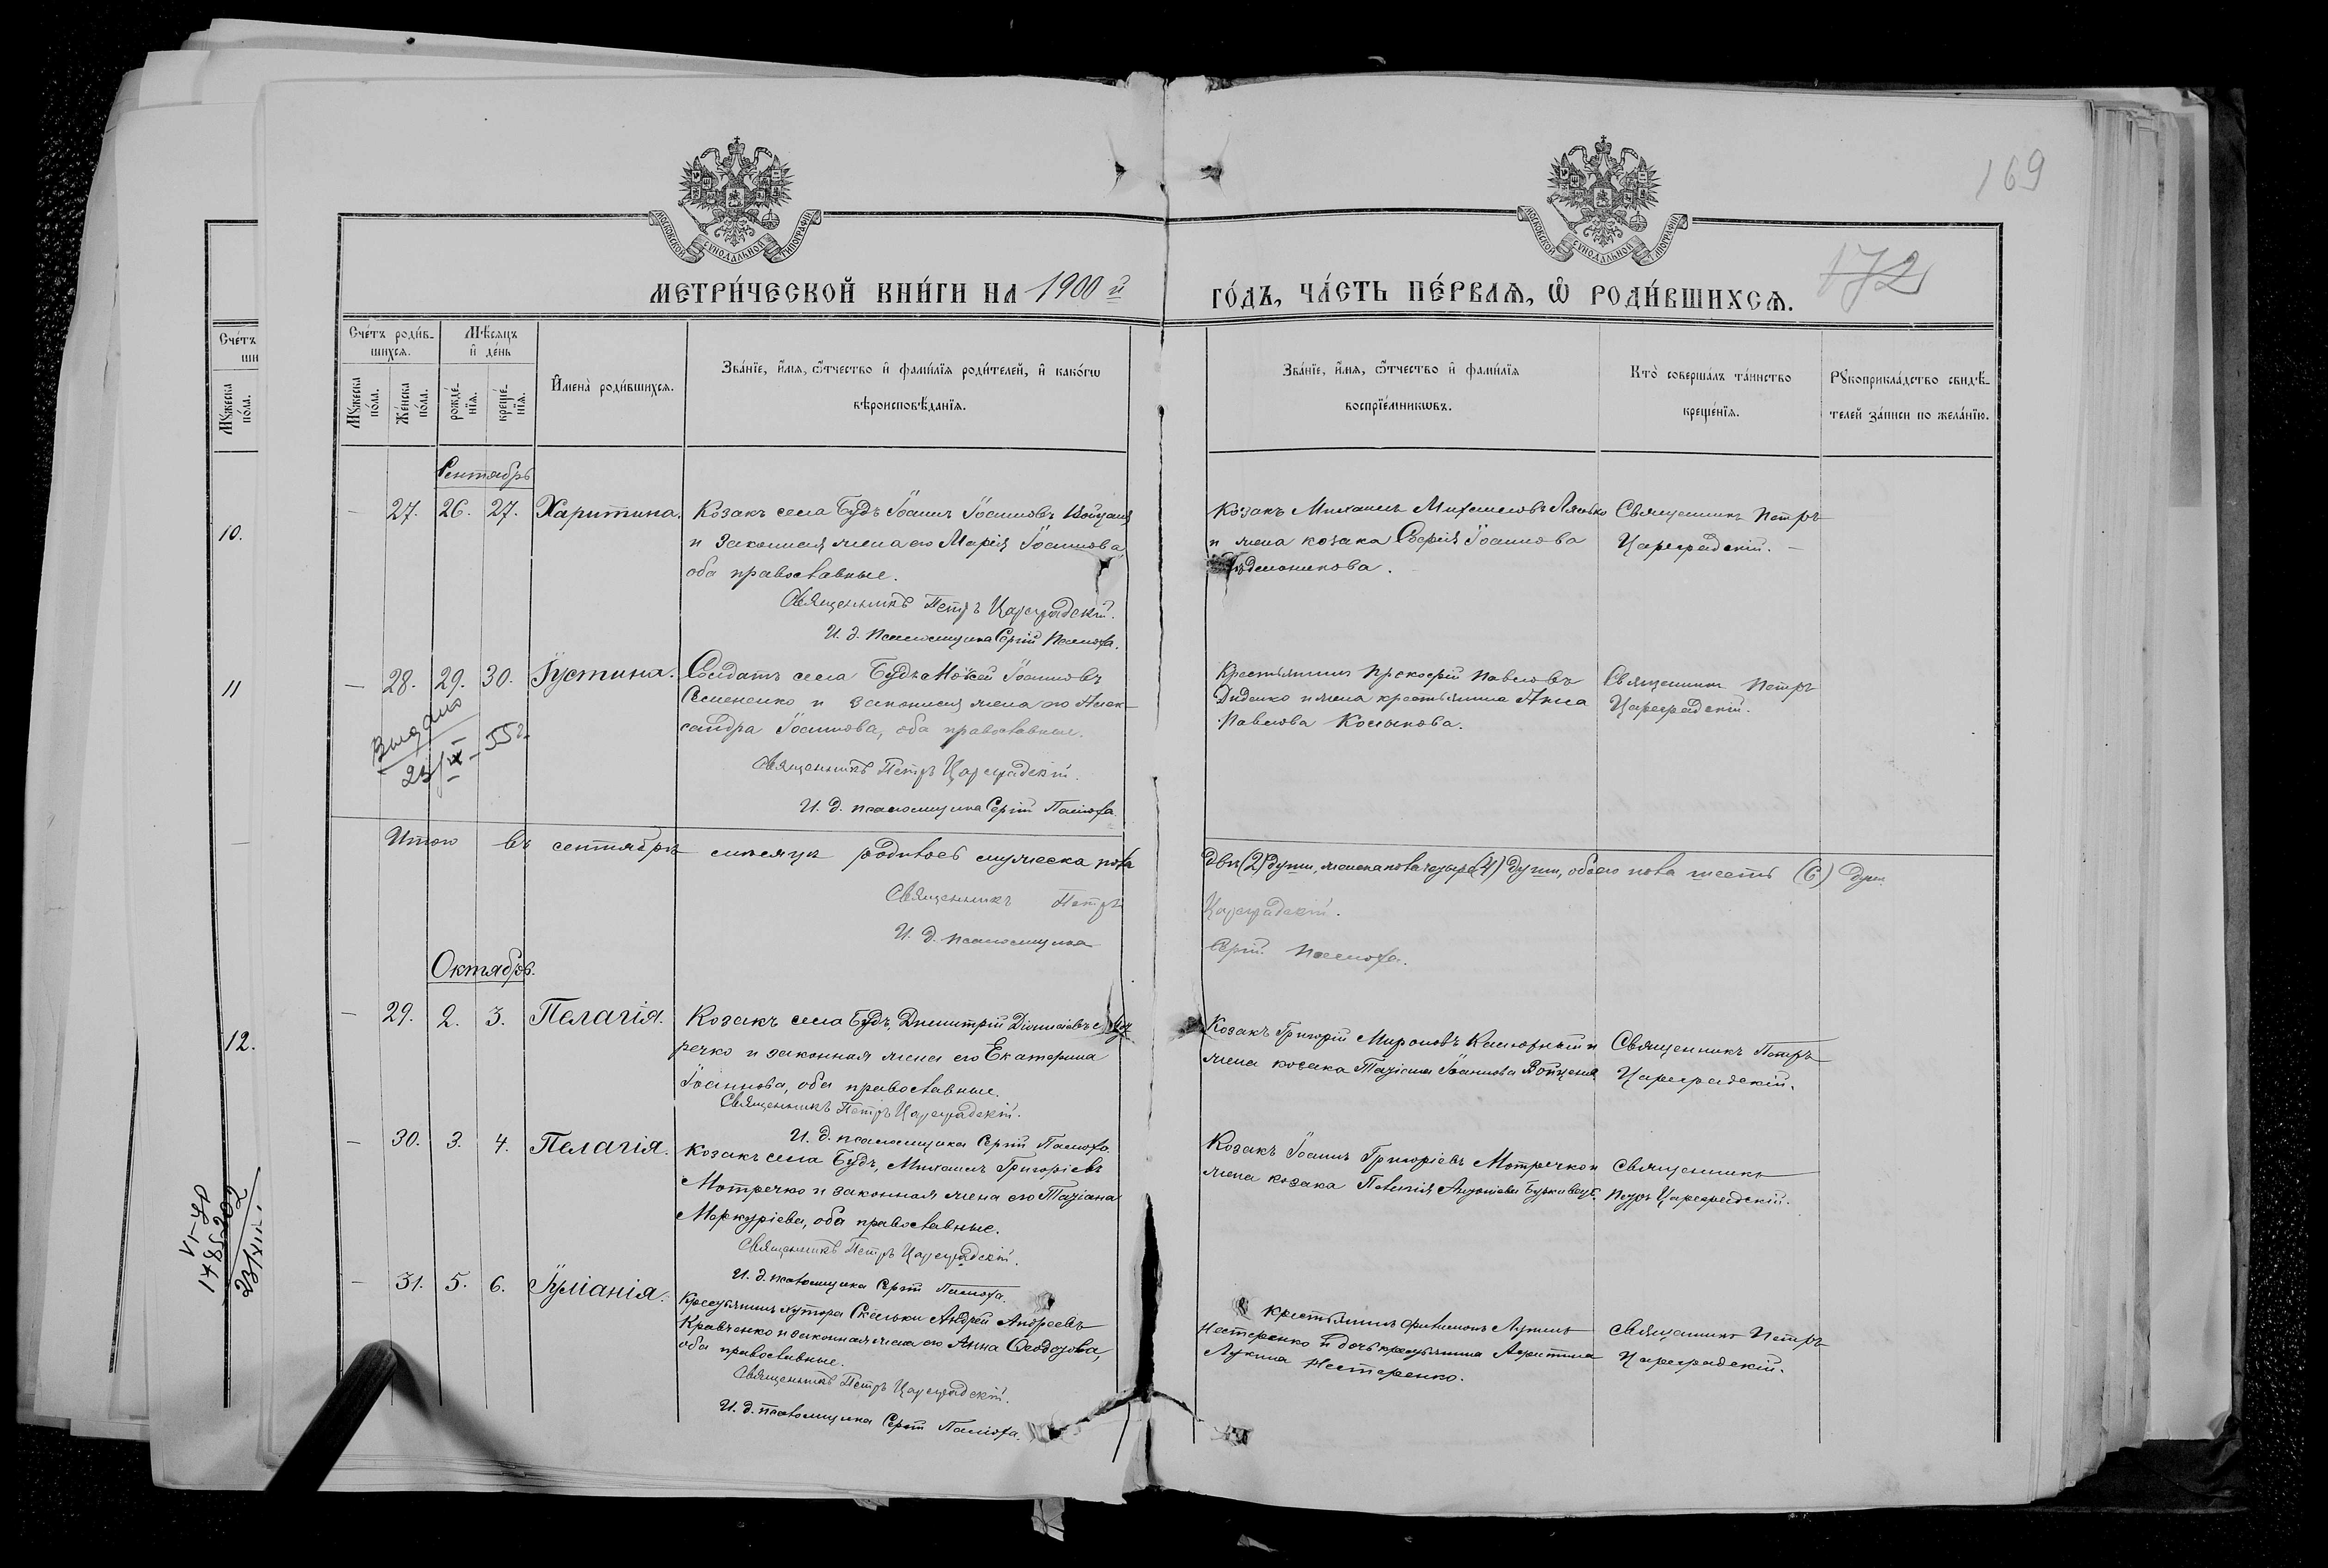 169
172
МОСКОВСКОЙ СУНОДАЛЬНОЙ ТИПОГРАФІИ
МОСКОВСКОЙ СУНОДАЛЬНОЙ ТИПОГРАФІИ
МЕТРИ́ЧЕСКОЙ КНИ́ГИ НА 1900 й ГО́ДЪ, ЧА́СТЬ ПЕ́РВАѦ, Ѡ РОДИ́ВШИХСѦ.
Сче́тъ роди́в-
шихсѧ.
Мꙋжеска
по́ла.
Же́нска
по́ла.
Мѣ́сѧцъ
и҆ де́нь
рожде́-
нїѧ.
креще́-
нїѧ.
И҆мена̀ роди́вшихсѧ.
Зва́нїе, и҆́мѧ, ѻ҆́тчество и҆ фами́лїѧ роди́телей, и҆ како́гѡ
вѣроисповѣ́данїѧ.
Зва́нїе, и҆́мѧ, ѻ҆́тчество и҆ фами́лїѧ
воспрїе́мникѡвъ.
Кто̀ соверша́лъ та́инство
креще́нїѧ.
Рꙋкоприкла́дство свидѣ́-
телей за́писи по жела́нїю.
Сче́тъ
ши
Мꙋжеска
по́ла.
10.
11
12.
Сентябрь
— 27. 26. 27. Харитина.
Козакъ села Будъ Іоаннъ Іоанновъ
и законная жена его Марія Іоаннова,
оба православные.
Священникъ Петръ Цареградскій.
И. д. псаломщика Сергій
Козакъ Михаилъ Михаиловъ Лясько
и жена козака Софія Іоаннова
Священникъ Петръ
Цареградскій. —
— 28. 29. 30. Іустина.
Солдатъ села Будъ Моѵсей Іоанновъ
Семененко и законная жена его Алек-
сандра Іоаннова, оба православные.
Священникъ Петръ Цареградскій.
И. д. псаломщика Сергій
Крестьянинъ Прокофій Павловъ
Диденко и жена крестьянина Анна
Павлова
Священникъ Петръ
Цареградскій.
Выдано
23/ — 55 г.
Итого въ сентябрѣ мѣсяцѣ родилось мужеска пола
двѣ (2) души, женска пола четыре (4) души, обоего пола шесть (6) душ.
Священникъ Петръ Цареградскій.
И. д. псаломщика Сергій
Октябрь.
— 29. 2. 3. Пелагія.
Козакъ села Будъ, Димитрій Діонисіевъ
речко и законная жена его Екатерина
Іоаннова, оба православные.
Священникъ Петръ Цареградскій.
И. д. псаломщика Сергій
Козакъ Григорій Мироновъ и
жена козака Татіана Іоаннова
Священникъ Петръ
Цареградскій.
— 30. 3. 4. Пелагія.
Козакъ села Будъ, Михаилъ Григоріевъ
Мотречко и законная жена его Татіана
Меркуріева, оба православные.
Священникъ Петръ Цареградскій.
И. д. псаломщика Сергій
Козакъ Іоаннъ Григоріевъ Мотречко и
жена козака
Священникъ
Петръ Цареградскій.
— 31. 5. 6. Іуліанія.
Крестьянинъ хутора Андрей Андреевъ
Кравченко и законная жена его Анна Ѳеодотова,
оба православные.
Священникъ Петръ Цареградскій.
И. д. псаломщика Сергій
Крестьянинъ Филимонъ Лукинъ
Нестеренко и дочь крестьянина
Лукина Нестеренко.
Священникъ Петръ
Цареградскій.